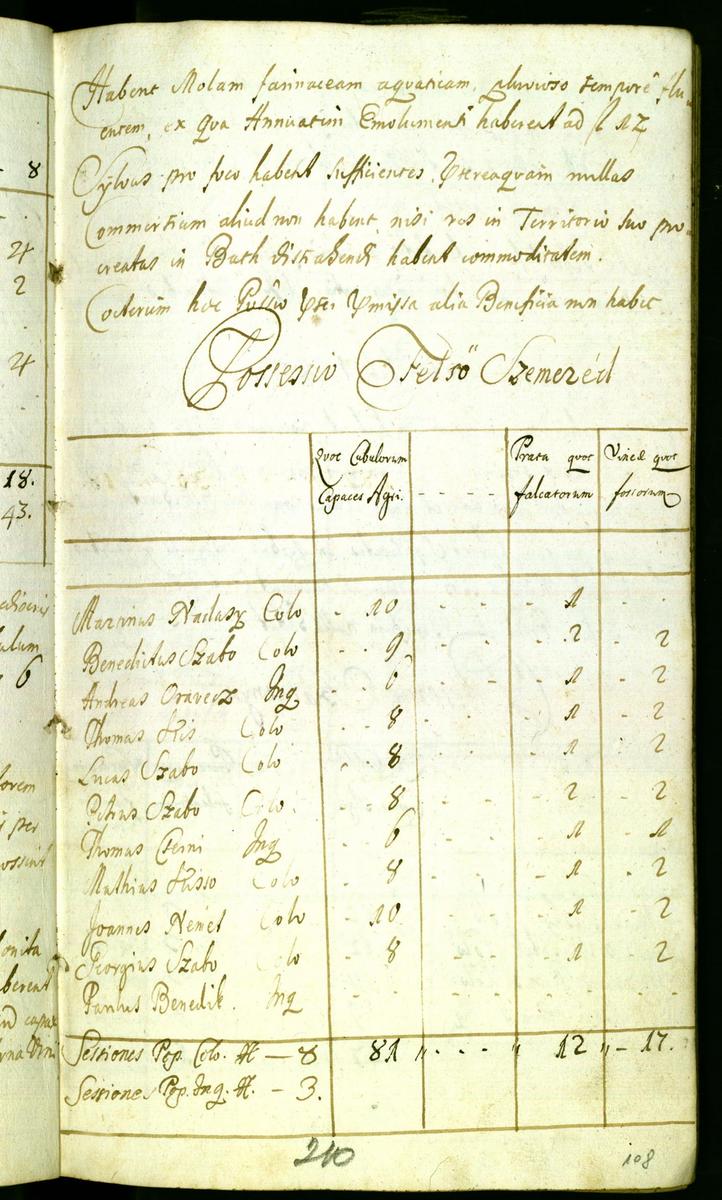 Habent Molam farinaceam aquaticam, pluvioso tempore flu„
entem, ex qua Annuatim Emolumenti haberent ad f 12
Sylvas pro foco habent sufficientes, pstereaquam nullas
Commertium aliud non habent, nisi res in Territorio suo pro„
creatas in Bath distrahendi habent commoditatem.
Coeterum hoc Possio pster pmissa alia Beneficia non habet
Possessio Felső Szemeréd
Quot Cubulorum Capaces Agri. - - - - Prata quot falcatorum Vineæ quot fossorum
Martinus Nadasy Colo - 10 - - - 1 - -
Benedictus Szabo Colo - 9 - - - 2 - 2
Andreas Oravecz Inq - 6 - - - 1 - 2
Thomas Kis Colo - 8 - - - 1 - 2
Lucas Szabo Colo - 8 - - - 1 - 2
Petrus Szabo Colo - 8 - - - 2 - 2
Thomas Cserni Inq - 6 - - - 1 - 1
Mathias Kisso Colo - 8 - - - 1 - 2
Joannes Német Colo - 10 - - - 1 - 2
Georgius Szabo Colo - 8 - - - 1 - 2
Paulus Benedik. Inq - - - - - - -
Sessiones Pop. Colo. H — 8 81 „ - - - „ 12 „ - 17.
Sessiones Pop. Inq. H. - 3.
210
108